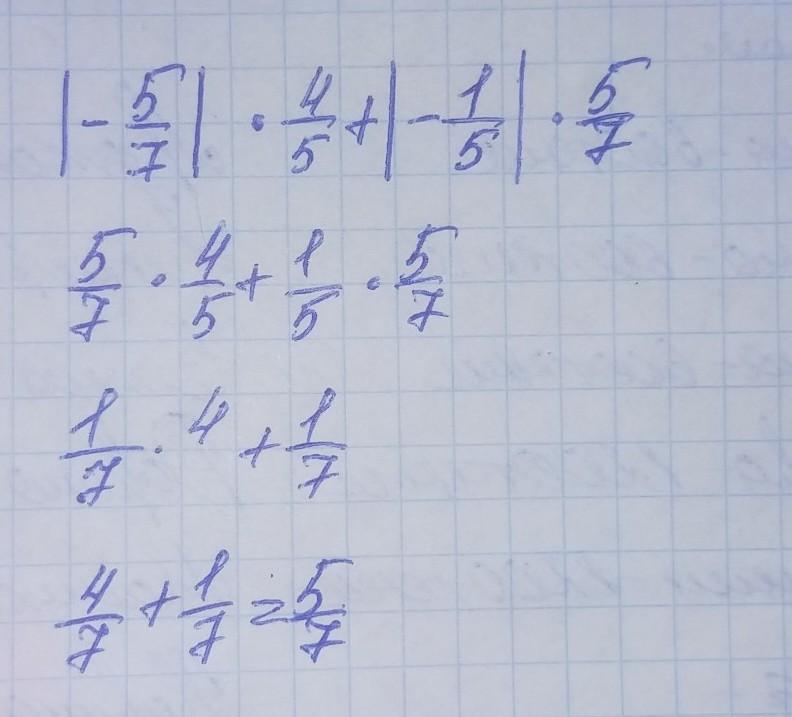 |-5/7| · 4/5 + |-1/5| · 5/7
5/7 · 4/5 + 1/5 · 5/7
1/7 · 4 + 1/7
4/7 + 1/7 = 5/7